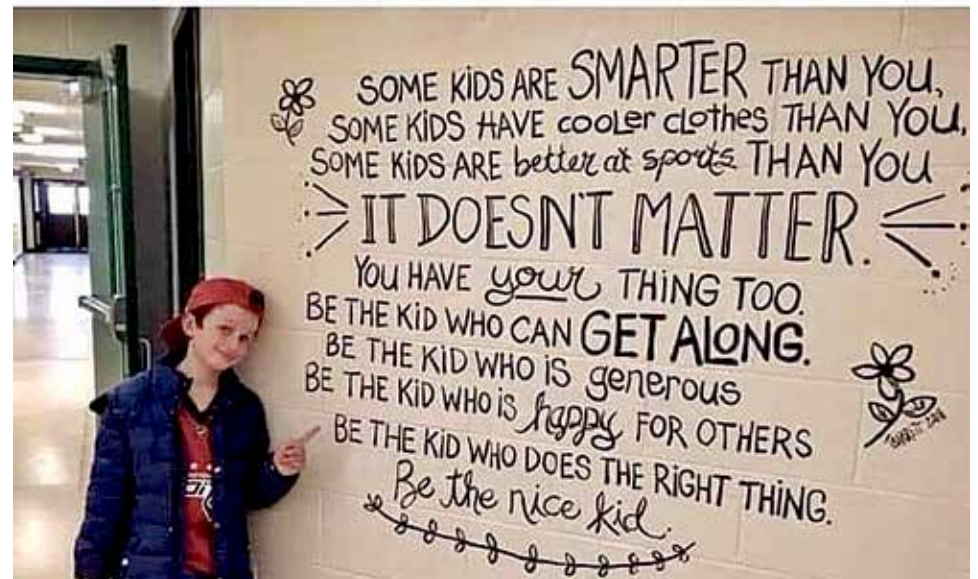 SOME KIDS ARE SMARTER THAN YOU,
SOME KIDS HAVE cooler clothes THAN YOU,
SOME KIDS ARE better at sports THAN YOU
IT DOESN'T MATTER.
YOU HAVE your THING TOO.
BE THE KID WHO CAN GET ALONG.
BE THE KID WHO iS generous
BE THE KID WHO iS happy FOR OTHERS
BE THE KID WHO DOES THE RIGHT THING.
Be the nice kid.